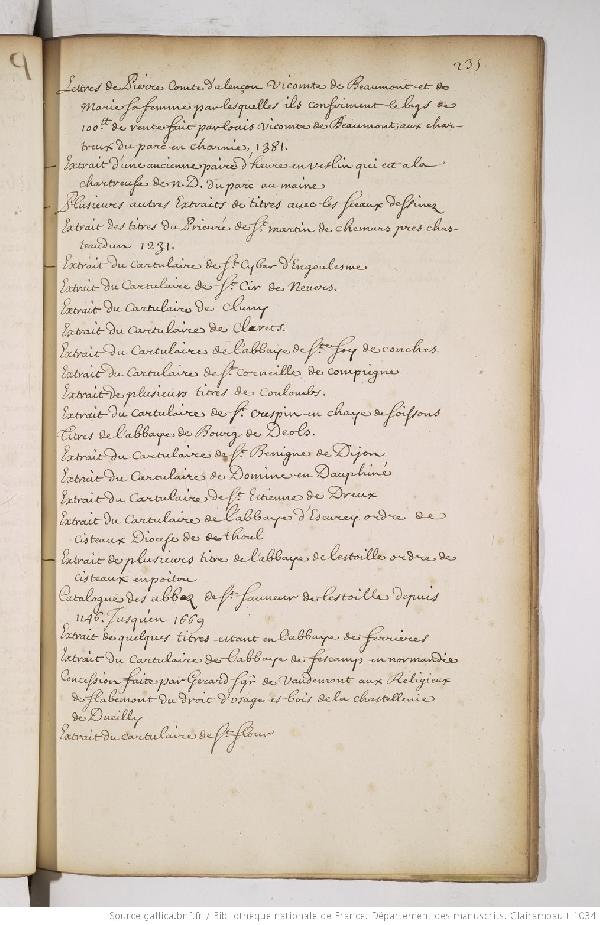 235
Lettres de Pierre Comte d'alençon Vicomte de Beaumont et de
Marie sa femme par lesquelles ils confirment le legs de
100.tt de rente fait par louis Vicomte de Beaumont, aux char-
treux du parc en charnie, 1381.
Extrait d'une ancienne paire d'heure en velin qui est a la
chartreuse de n.D. du parc au maine
Plusieurs autres Extraits de titres avec les sceaux dessinez
Extrait des titres du Prieuré de St. martin de chemars pres chas-
teaudun 1231.
Extrait du Cartulaire de St. Cybar d'Engoulesme
Extrait du Cartulaire de St. Cir de Nevers.
Extrait du Cartulaire de Cluny
Extrait du Cartulaire de Clarets.
Extrait du Cartulaire de l'abbaye de Ste foy de conches
Extrait du Cartulaire de St. corneille de compiegne
Extrait de plusieurs titres de Coulombs.
Extrait du Cartulaire de St. crespin en chaye de soissons
Titres de l'abbaye de Bourg de Deols.
Extrait du Cartulaire de St. Benigne de Dijon
Extrait du Cartulaire de Domine en Dauphiné
Extrait du Cartulaire de St. Etienne de Dreux
Extrait du Cartulaire de l'abbaye d'Escurey ordre de
cisteaux Diocese de
Extrait de plusieurs titre de l'abbaye de lestoille ordre de
cisteaux en poitou
Catalogue des abbez de St. sauveur de lestoille depuis
1146. Jusqu'en 1669
Extrait de quelques titres estant en l'abbaye de ferrieres
Extrait du Cartulaire de l'abbaye de fescamp en normandie
Concession faite par Gerard Sgr. de Vaudemont aux Religieux
de flabemont du droit d'usage es bois de la chastellenie
de Dueilly
Extrait du Cartulaire de St. flour
Source gallica.bnf.fr / Bibliothèque nationale de France. Département des manuscrits. Clairambault 1034